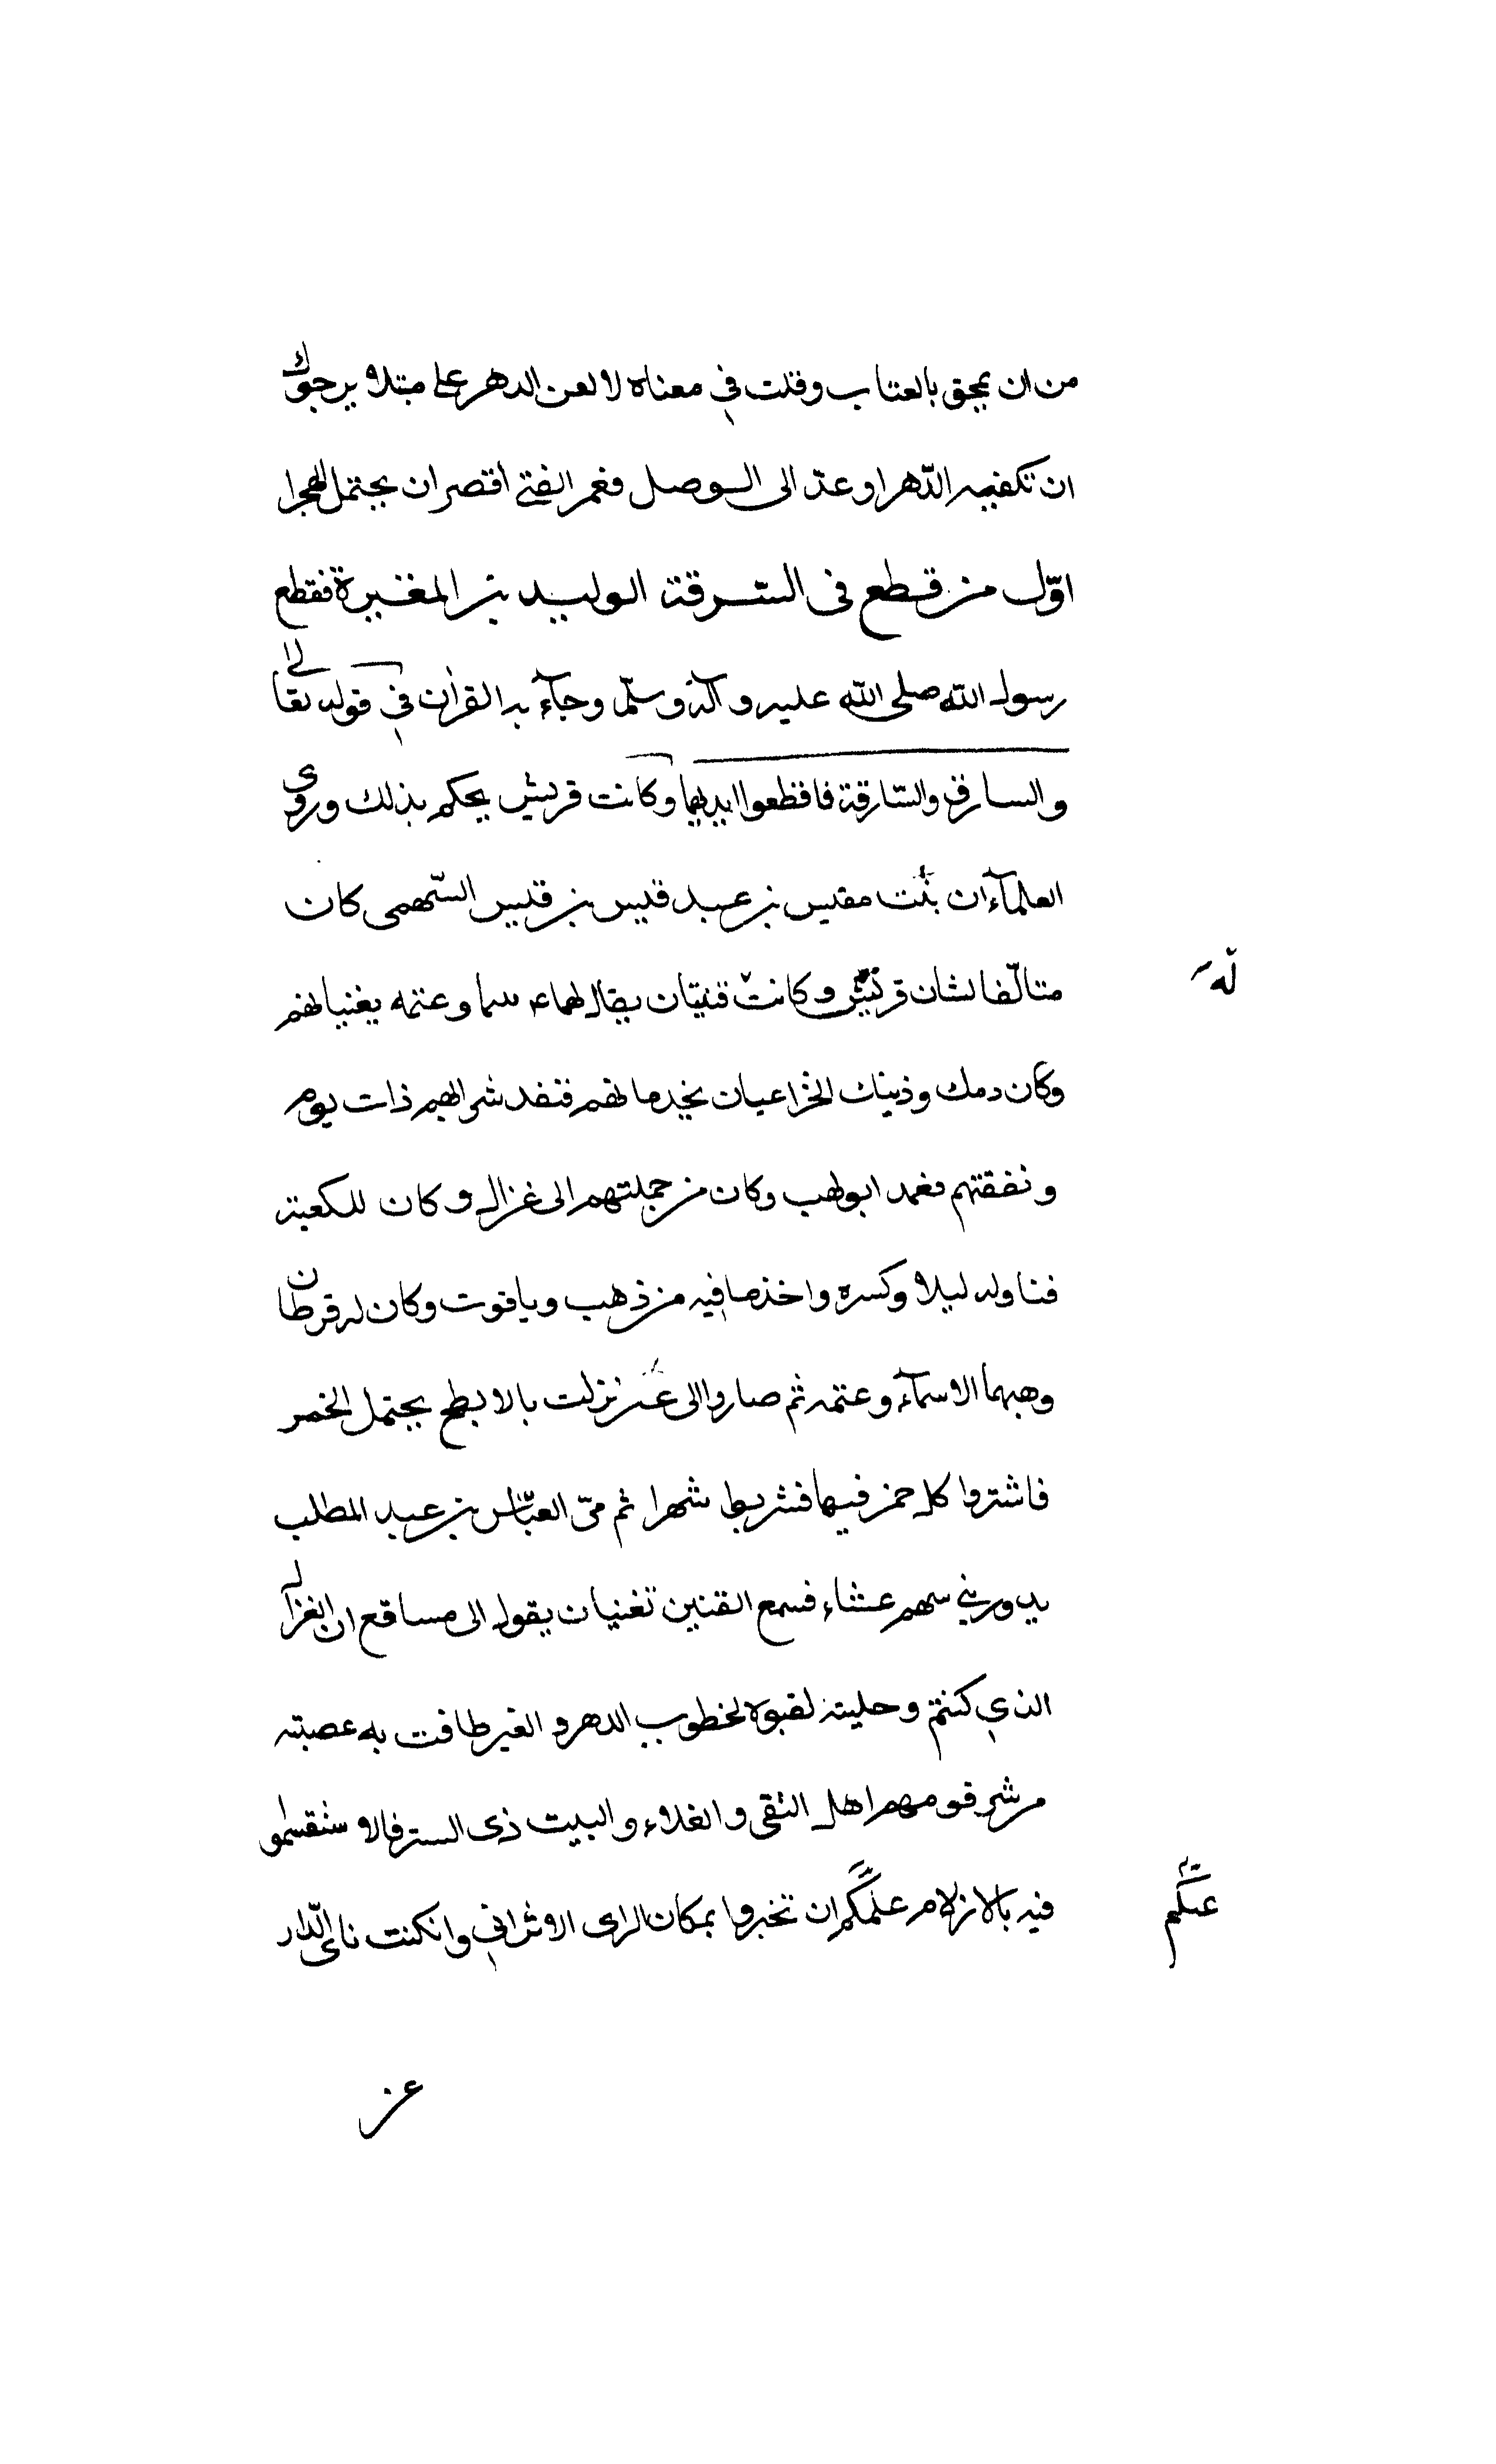 من ان يمحق بالعتاب وقلت في معناه لا لعن الدهر على مبتلا يرجوك
ان تكفيه الدهرا وعد الى الوصل فعمر الفتى اقصر ان يحتمل الهجرا
اوّل من قطع في السّرقة الوليد بن المغيرة فقطع
رسول الله صلى الله عليه وآله وسلّم وجآء به القرآن في قوله تعالى
والسارق والسّارقة فاقطعوا ايديهما وكانت قريش يحكم بذلك وروى
العلمآء ان بنت مقيس بن عبد قيس بن قيس السّهمى كان
متالّفا لشان قريش وكانت قنيتان يقال لهما اسما وعتمه يغنيا لهم
له
وكان دمك وذبيان الخزاعيان يخدمانهم فنفد شرابهم ذات يوم
ونفقتهم فعمد ابولهب وكان من جملتهم الى غزال وكان للكعبة
فناوله ليلا وكسره واخذ ما فيه من ذهب وياقوت وكان له قرطان
وهبهما الاسمآء وعتمه ثم صاروا الى عير نزلت بالابطح يحتمل الخمر
فاشتروا كل خمر فيها فشربوا شهرا ثم مرّ العبّاس بن عبد المطلب
بدور بني سهم عشاء فسمع القنين تغنيان يقول الى مسافع ان الغزال
الذي كنتم وحليته لقبوه لخطوب الدهر والغير طافت به عصبته
من شر قومهم اهل التقى والغلاء والبيت ذى الستر فالا ستقسموا
فيه بالازلام علمكم ان تخبروا بمكان الراى الاوثراني وانكنت نائى الدّار
عمّكم
عن